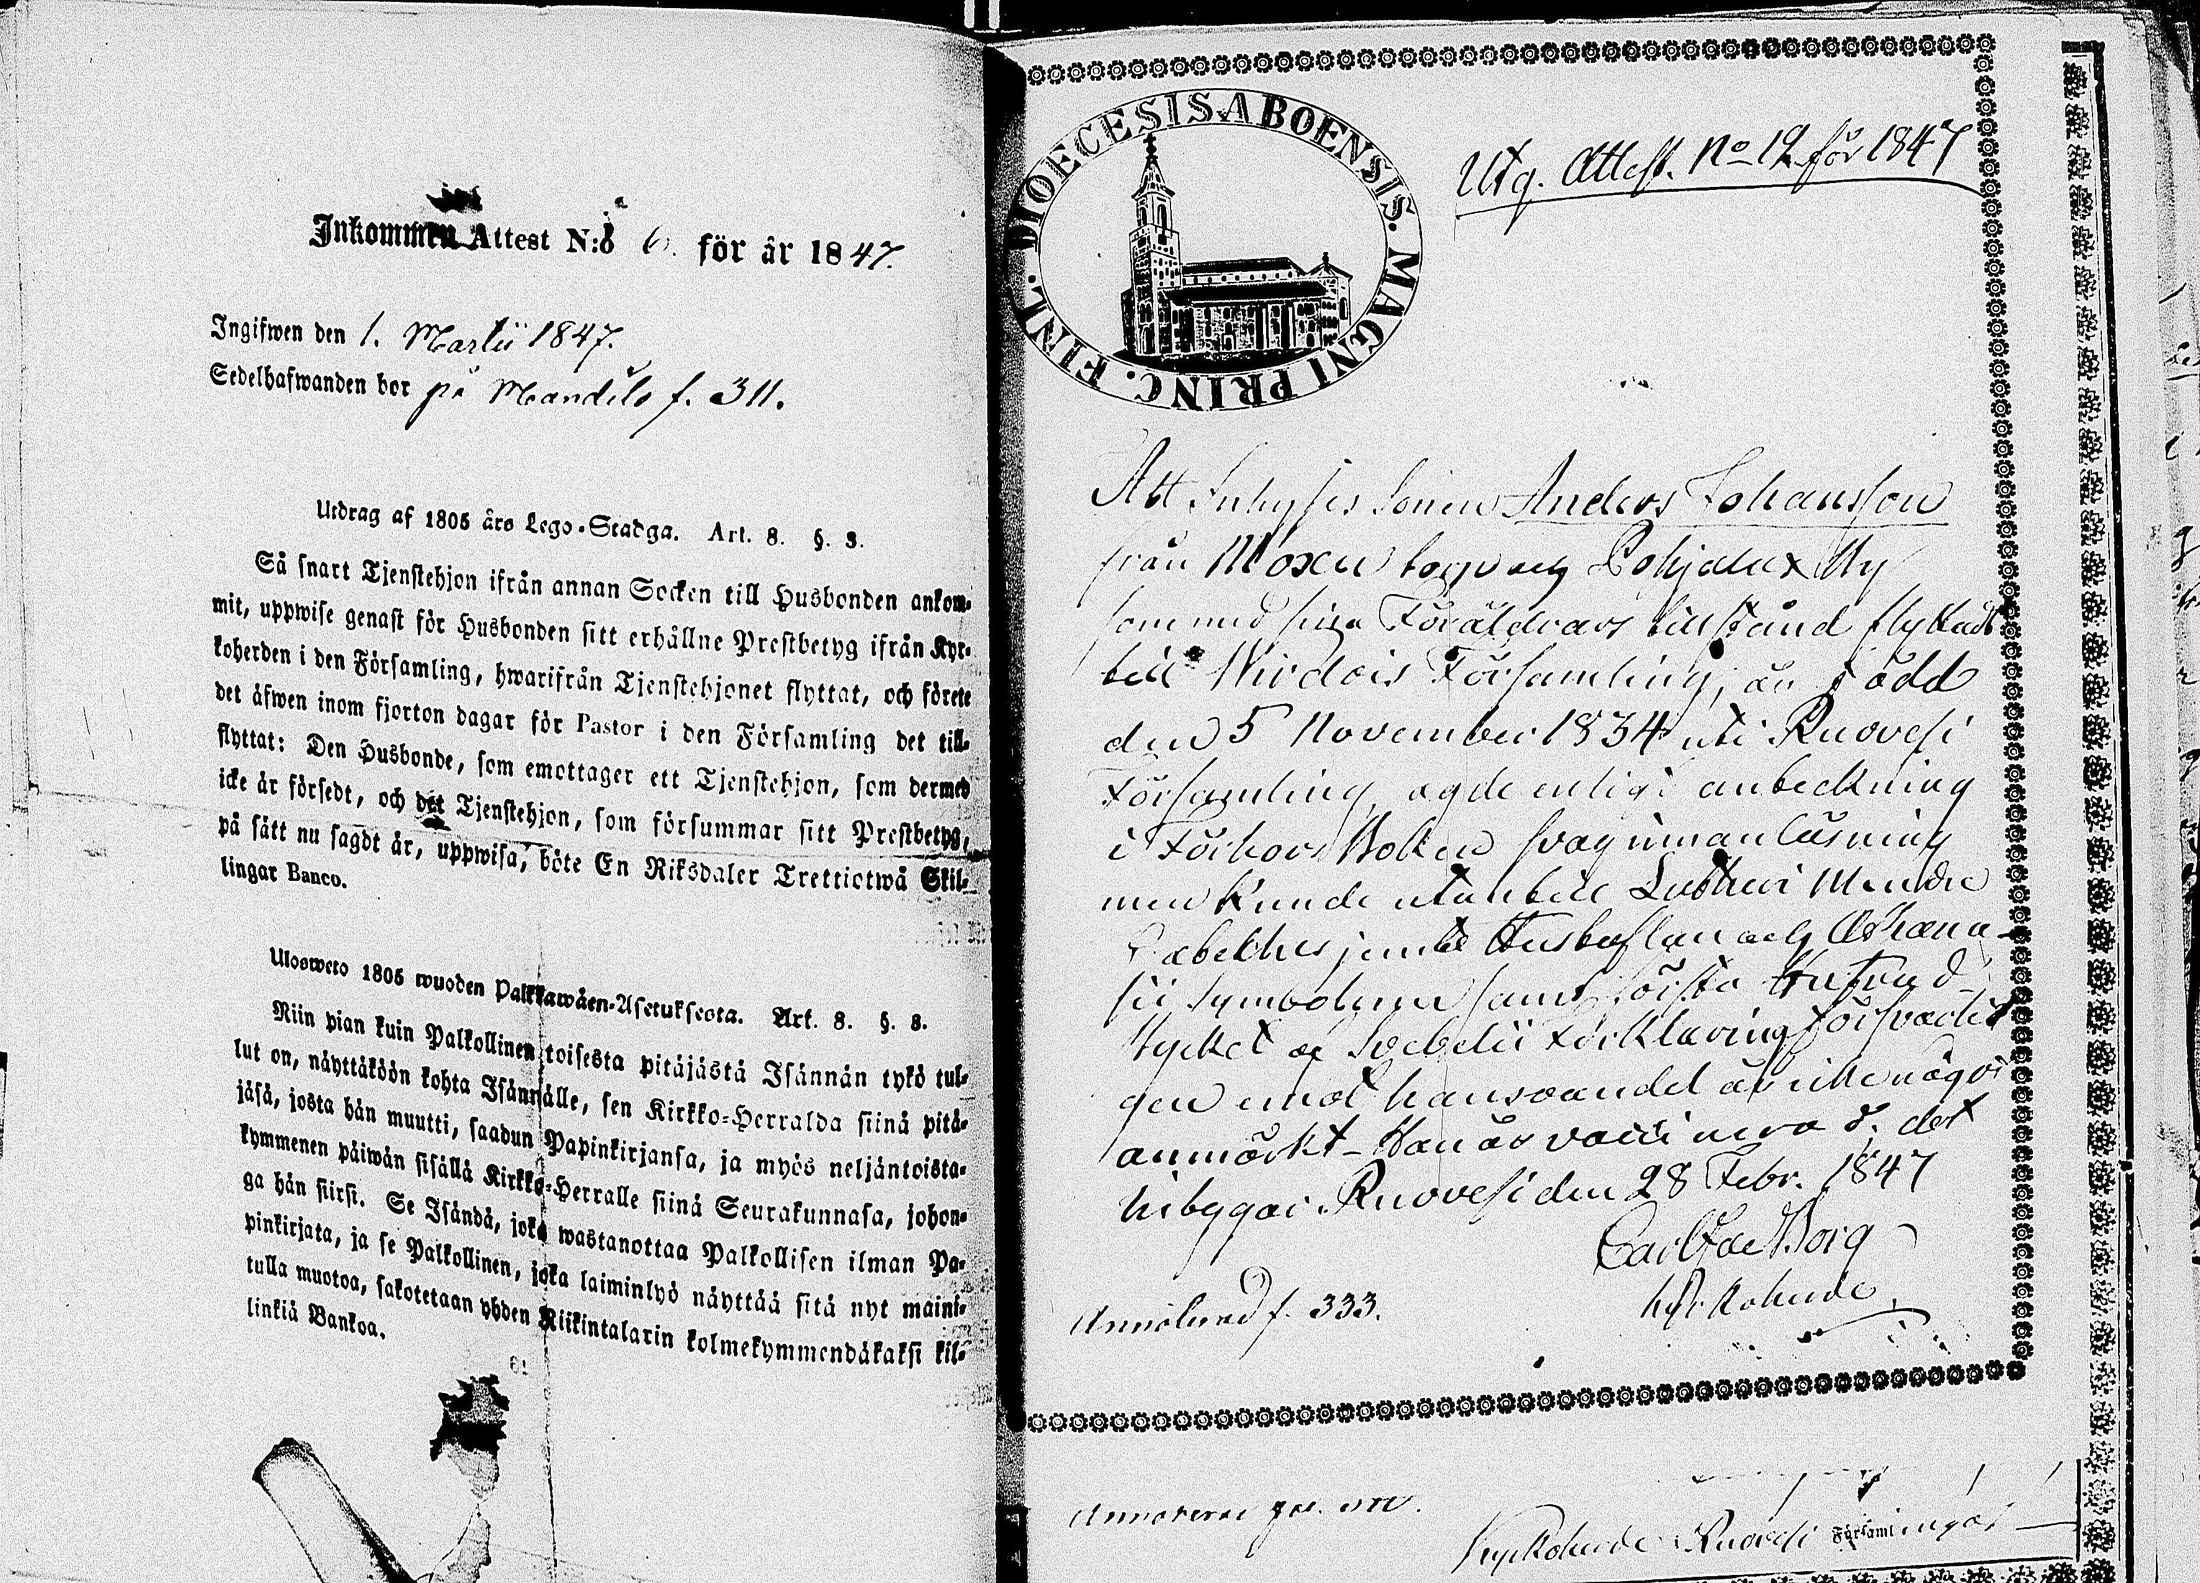 Inkommen Attest N:o 6. för år 1847.
Ingifwen den 1. Martii 1847.
Sedelhafwanden bor på Mandils f. 311.
Utdrag af 1805 års Lego-Stadga. Art. 8. §. 3.
Så snart Tjenstehjon ifrån annan Socken till Husbonden ankom-
mit, uppwise genast för Husbonden sitt erhållne Prestbetyg ifrån Kyr-
koherden i den Församling, hwarifrån Tjenstehjonet flyttat, och förete
det äfwen inom fjorton dagar för Pastor i den Församling det till-
flyttat: Den Husbonde, som emottager ett Tjenstehjon, som dermed
icke är försedt, och det Tjenstehjon, som försummar sitt Prestbetyg,
på sätt nu sagdt är, uppwisa, böte En Riksdaler Trettiotwå Skil-
lingar Banco.
Uloswето 1805 wuoden Palkkawäen-Asetuksesta. Art. 8. §. 3.
Niin pian kuin Palkollinen toisesta pitäjästä Isännän tykö tul-
lut on, näyttäköön kohta Isännälle, sen Kirkko-Herralda siinä pitä-
jäsä, josta hän muutti, saadun Papinkirjansa, ja myös neljäntoista-
kymmenen päiwän sisällä Kirkko-Herralle siinä Seurakunnasa, johon-
ga hän siirsi. Se Isändä, joka wastanottaa Palkollisen ilman Pa-
pinkirjata, ja se Palkollinen, joka laiminlyö näyttää sitä nyt maini-
tulla muotoa, sakotetaan yhden Riikintalarin kolmekymmendäkaksi kil-
linkiä Bankoa.
DIOECESIS ABOENSIS. MAGNI PRINC. FINL.
Utg. Attest. No 12 för 1847
Att Inhyses Sonen Anders Johansson
från Moxen torp och Pohjala By
som med sina Föräldrars tillstånd flyttade
till Wirdois Församling, är född
den 5 November 1834 uti Ruovesi
Församling ägde enligt anteckning
i Förhörs Boken svag innanläsning
men kunde utantill Lutheri Mindre
Catheches jemte Hustaflan och Athana-
sii Symbolum samt första Hufvud-
stycket af Svebelii Förklaring
gen emot hans vandel är icke något
anmärkt - Han är vaccinerad. det
betygar. Ruovesi den 28 Febr. 1847
Borg
Kyrkoherde.
f. 333.
Kyrkoherde i Ruovesi Församling